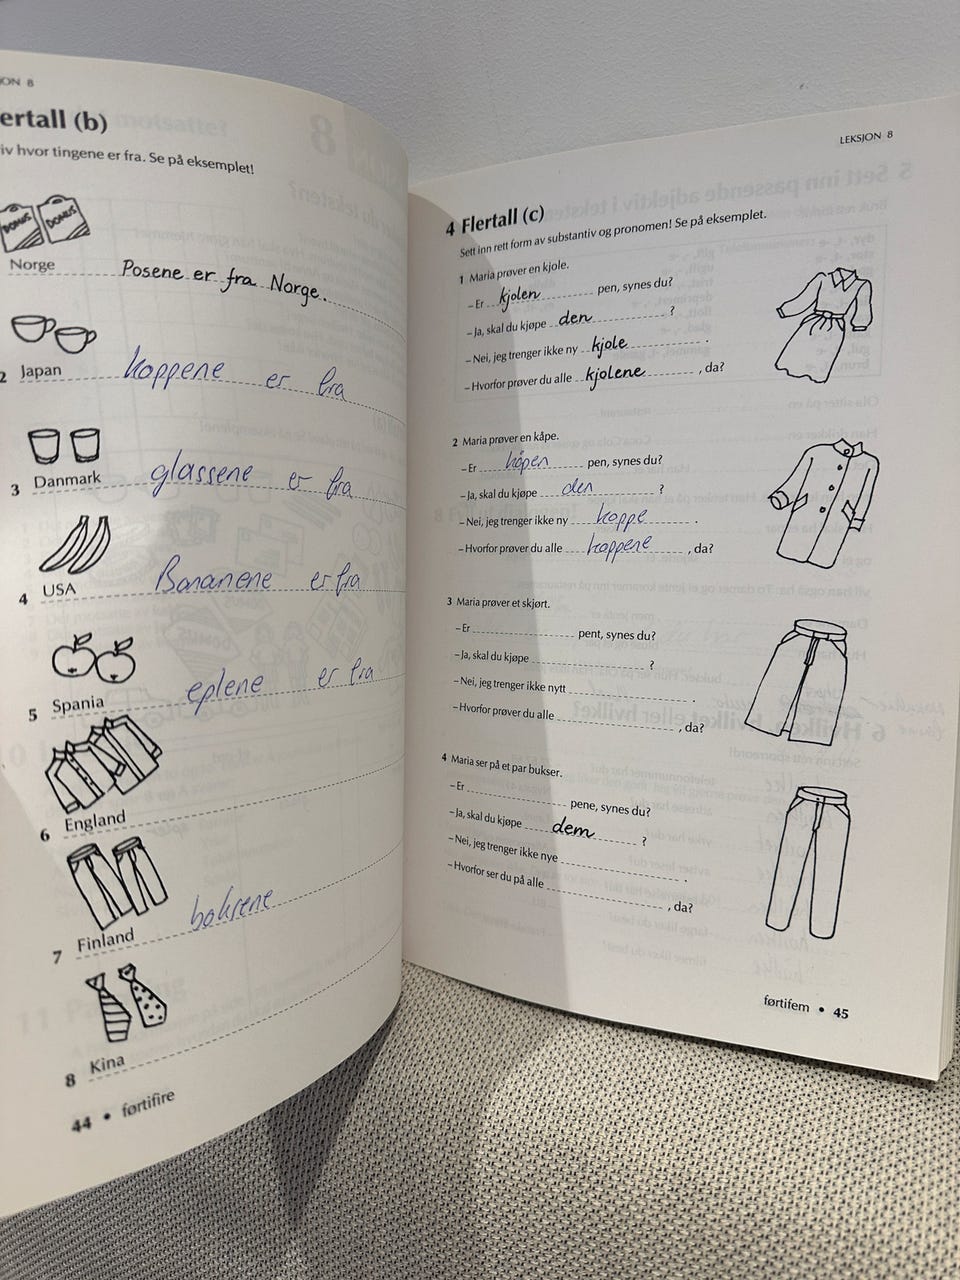 ON 8
ertall (b)
iv hvor tingene er fra. Se på eksemplet!
DOMUS DOMUS
Norge Posene er fra Norge.
2 Japan koppene er fra
3 Danmark glassene er fra
4 USA Bananene er fra
5 Spania eplene er fra
6 England
7 Finland boksene
8 Kina
44 • førtifire
LEKSJON 8
4 Flertall (c)
Sett inn rett form av substantiv og pronomen! Se på eksemplet.
1 Maria prøver en kjole.
– Er kjolen pen, synes du?
– Ja, skal du kjøpe den ?
– Nei, jeg trenger ikke ny kjole .
– Hvorfor prøver du alle kjolene , da?
2 Maria prøver en kåpe.
– Er kåpen pen, synes du?
– Ja, skal du kjøpe den ?
– Nei, jeg trenger ikke ny koppe .
– Hvorfor prøver du alle koppene , da?
3 Maria prøver et skjørt.
– Er pent, synes du?
– Ja, skal du kjøpe ?
– Nei, jeg trenger ikke nytt .
– Hvorfor prøver du alle , da?
4 Maria ser på et par bukser.
– Er pene, synes du?
– Ja, skal du kjøpe dem ?
– Nei, jeg trenger ikke nye .
– Hvorfor ser du på alle , da?
førtifem • 45